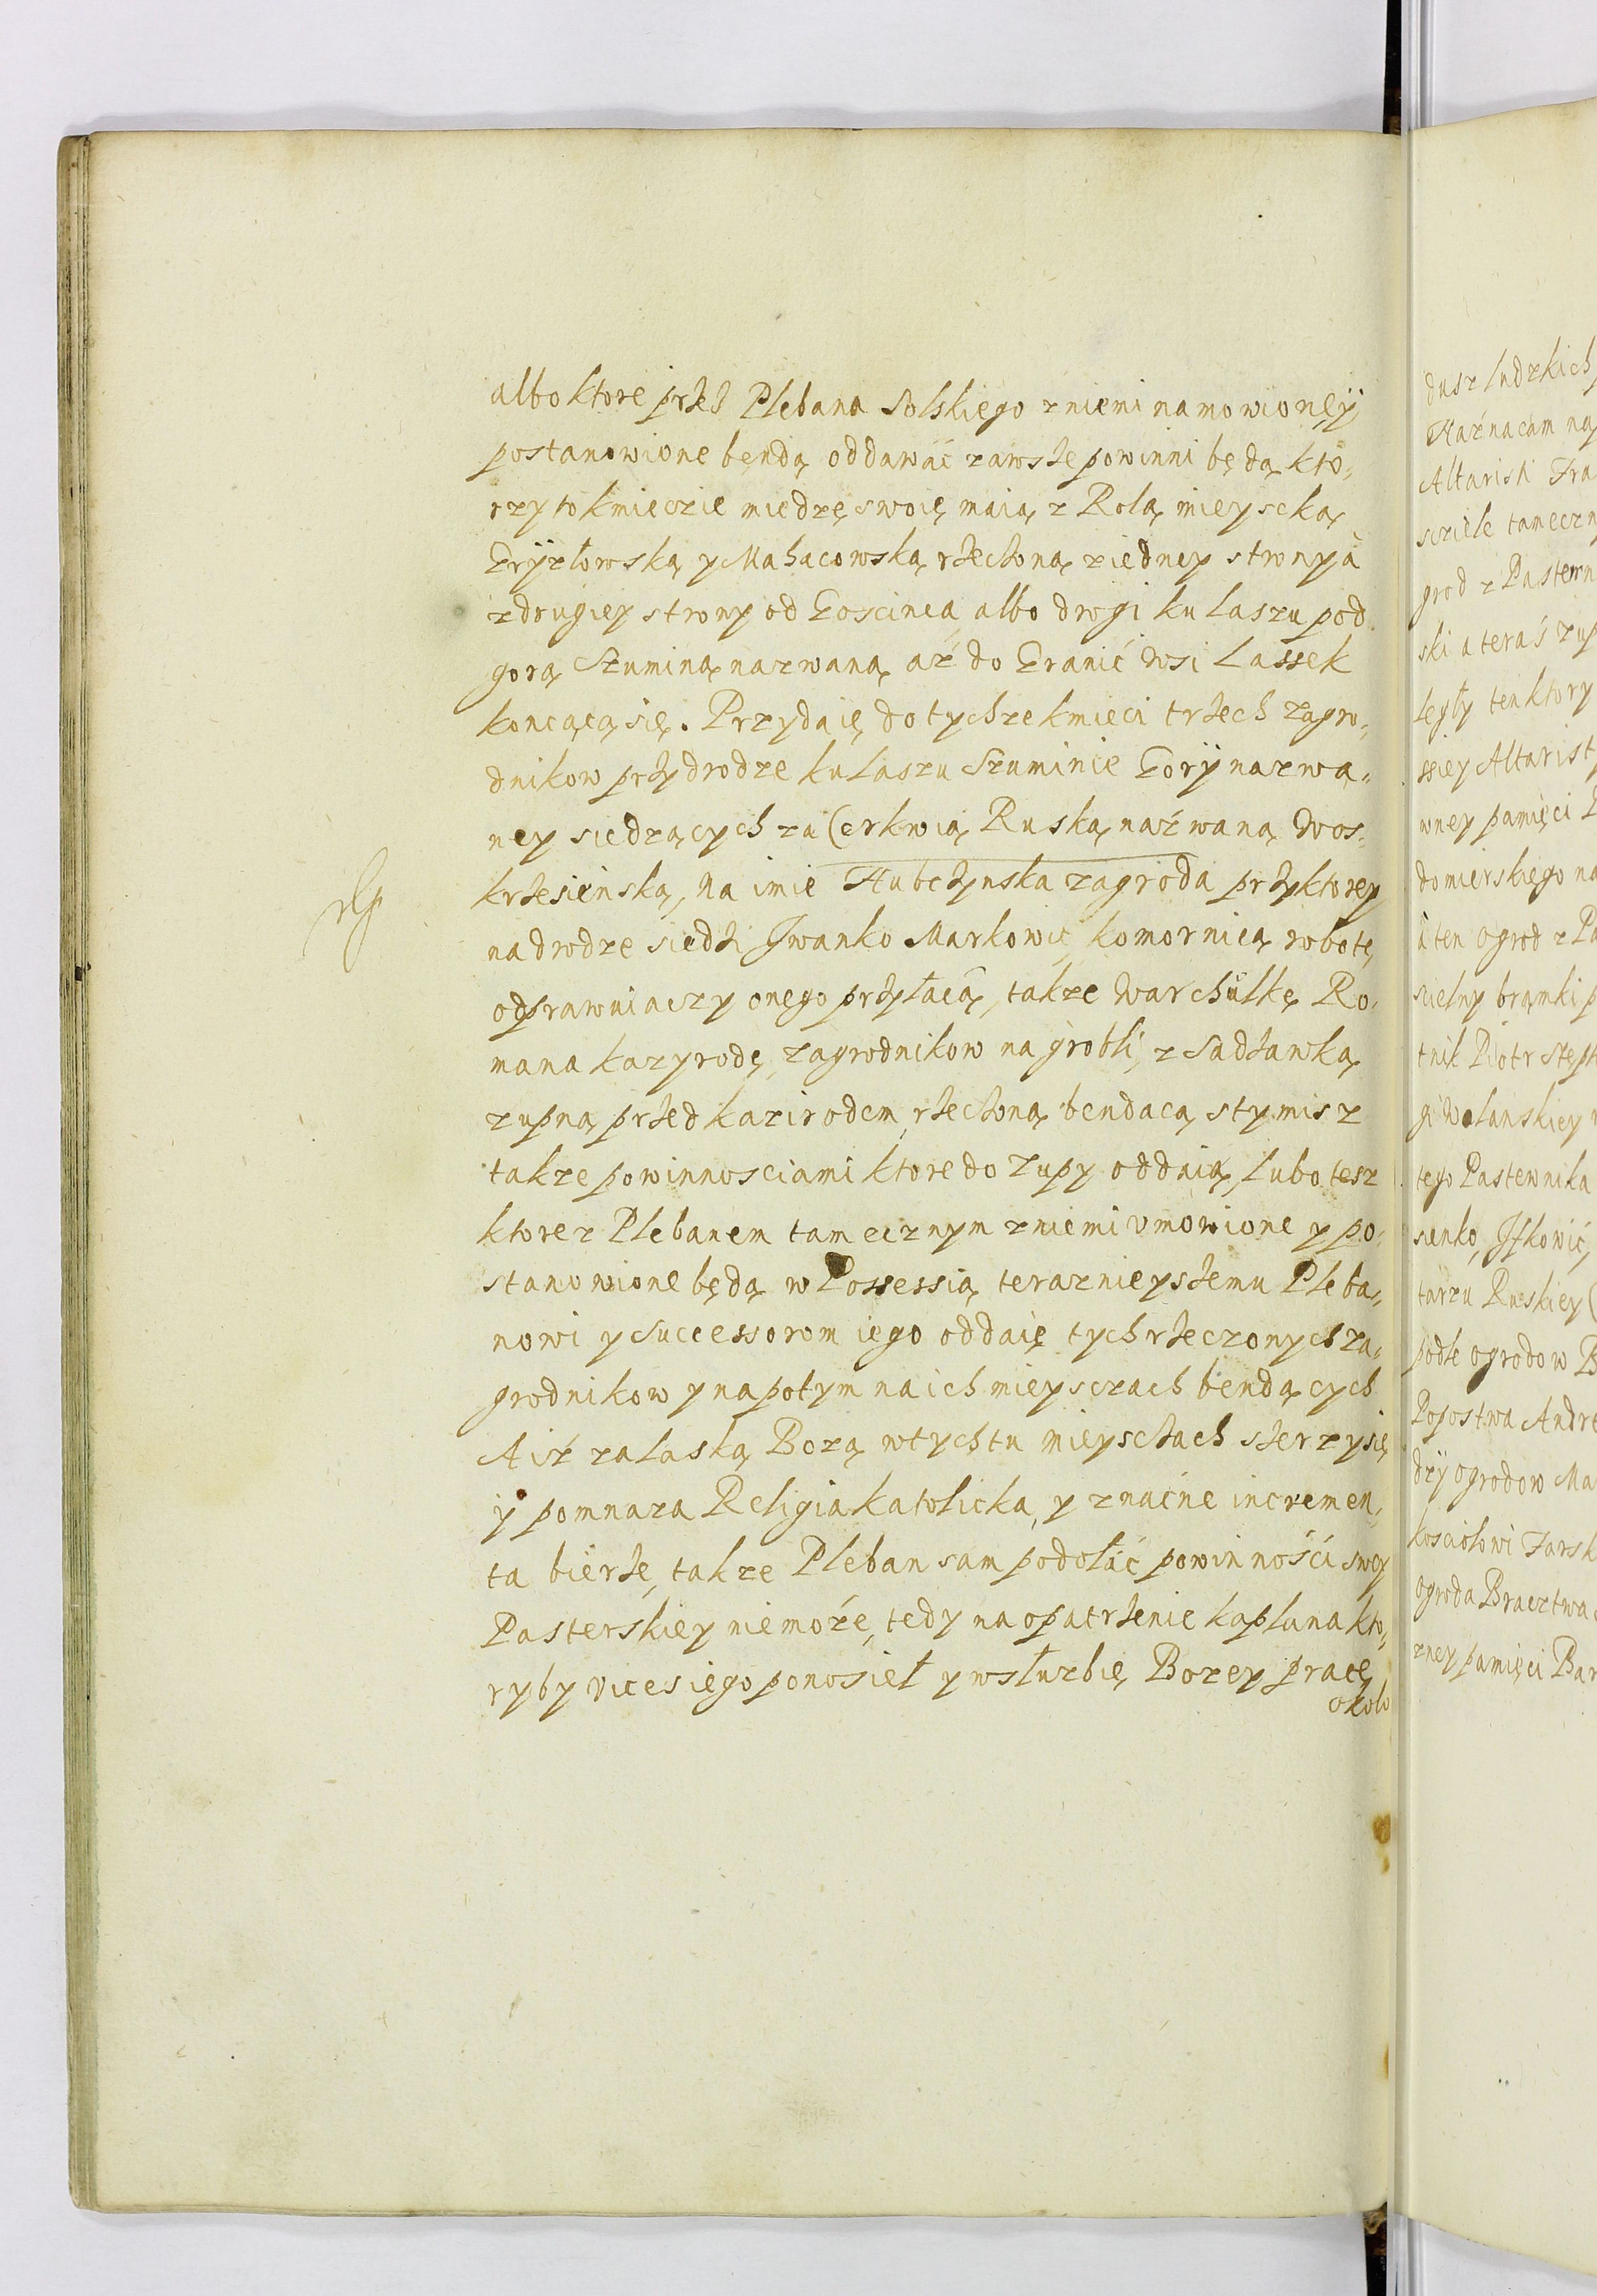 albo ktore przes Plebana Solskiego z niemi namowione ÿ
postanowione bendą oddawać zawsze powinni będą kto,
rzy to kmieczie miedzę swoię maią z Rolą mieyscką
Gryzłowską y Mahacowską rzeczoną z iedney strony à
z drugiey strony od Goscinca albo drogi ku Laszu pod
gorą Szuminą nazwaną aż do Granić Wsi Lassek
koncącą się. Przydaię do tychze kmieci trzech zagro,
dnikow przy drodze ku Laszu Szuminie Gorÿ nazwa,
ney siedzących za Cerkwią Ruską nazwaną Wos,
krzesieńską, Na imie Hubczynska zagroda przy ktorey
na drodze siedzi Jwanko Markowic komornicą robotę
odprawuiaczy onego przyłacą, takze Warchułkę Ro,
mana kazyrodę, zagrodnikow na grobli, z Sadzawką
zupną przed kazirodem rzeczoną bendacą, s tymisz
takze powinnosciami ktore do Zupy oddaią, Lubo tesz
ktore z Plebanem tamecznym z niemi vmowione y po,
stanowione będą w Possessią teraznieyszemu Pleba,
nowi y Successorom iego oddaię tych rzeczonych za,
grodnikow y napotym na ich mieyszach bendących
A iż za Laską Bożą w tych tu mieyszach szerzy się
ÿ pomnaza Religia katolicka, y znaćne incremen,
ta bierze, takze Pleban sam podołać powinnośći swey
Pasterskiey niemoże, tedy na opatrzenie kapłana kto,
ryby vices iego ponosieł y w słuzbię Bozey pracę
około
dusz ludzkich
Altaristi Fra
scziele tameczn
grod z Pastewn
ski a teraś zup
legły ten ktory
ssiey Altarist
wney pamięci
domierskiego na
à ten ogrod z Pa
scielny bramki p
tnik Piotr Stęp
gi Wolanskiey
tego Pastewnika
sienko, Jfkowić,
tarzu Ruskiey
podle ogrodow B
Popostwa Andre
dzÿ ogrodow Ma
kosciołowi Farsk
ogroda Bractwa
zney pamięci Bar